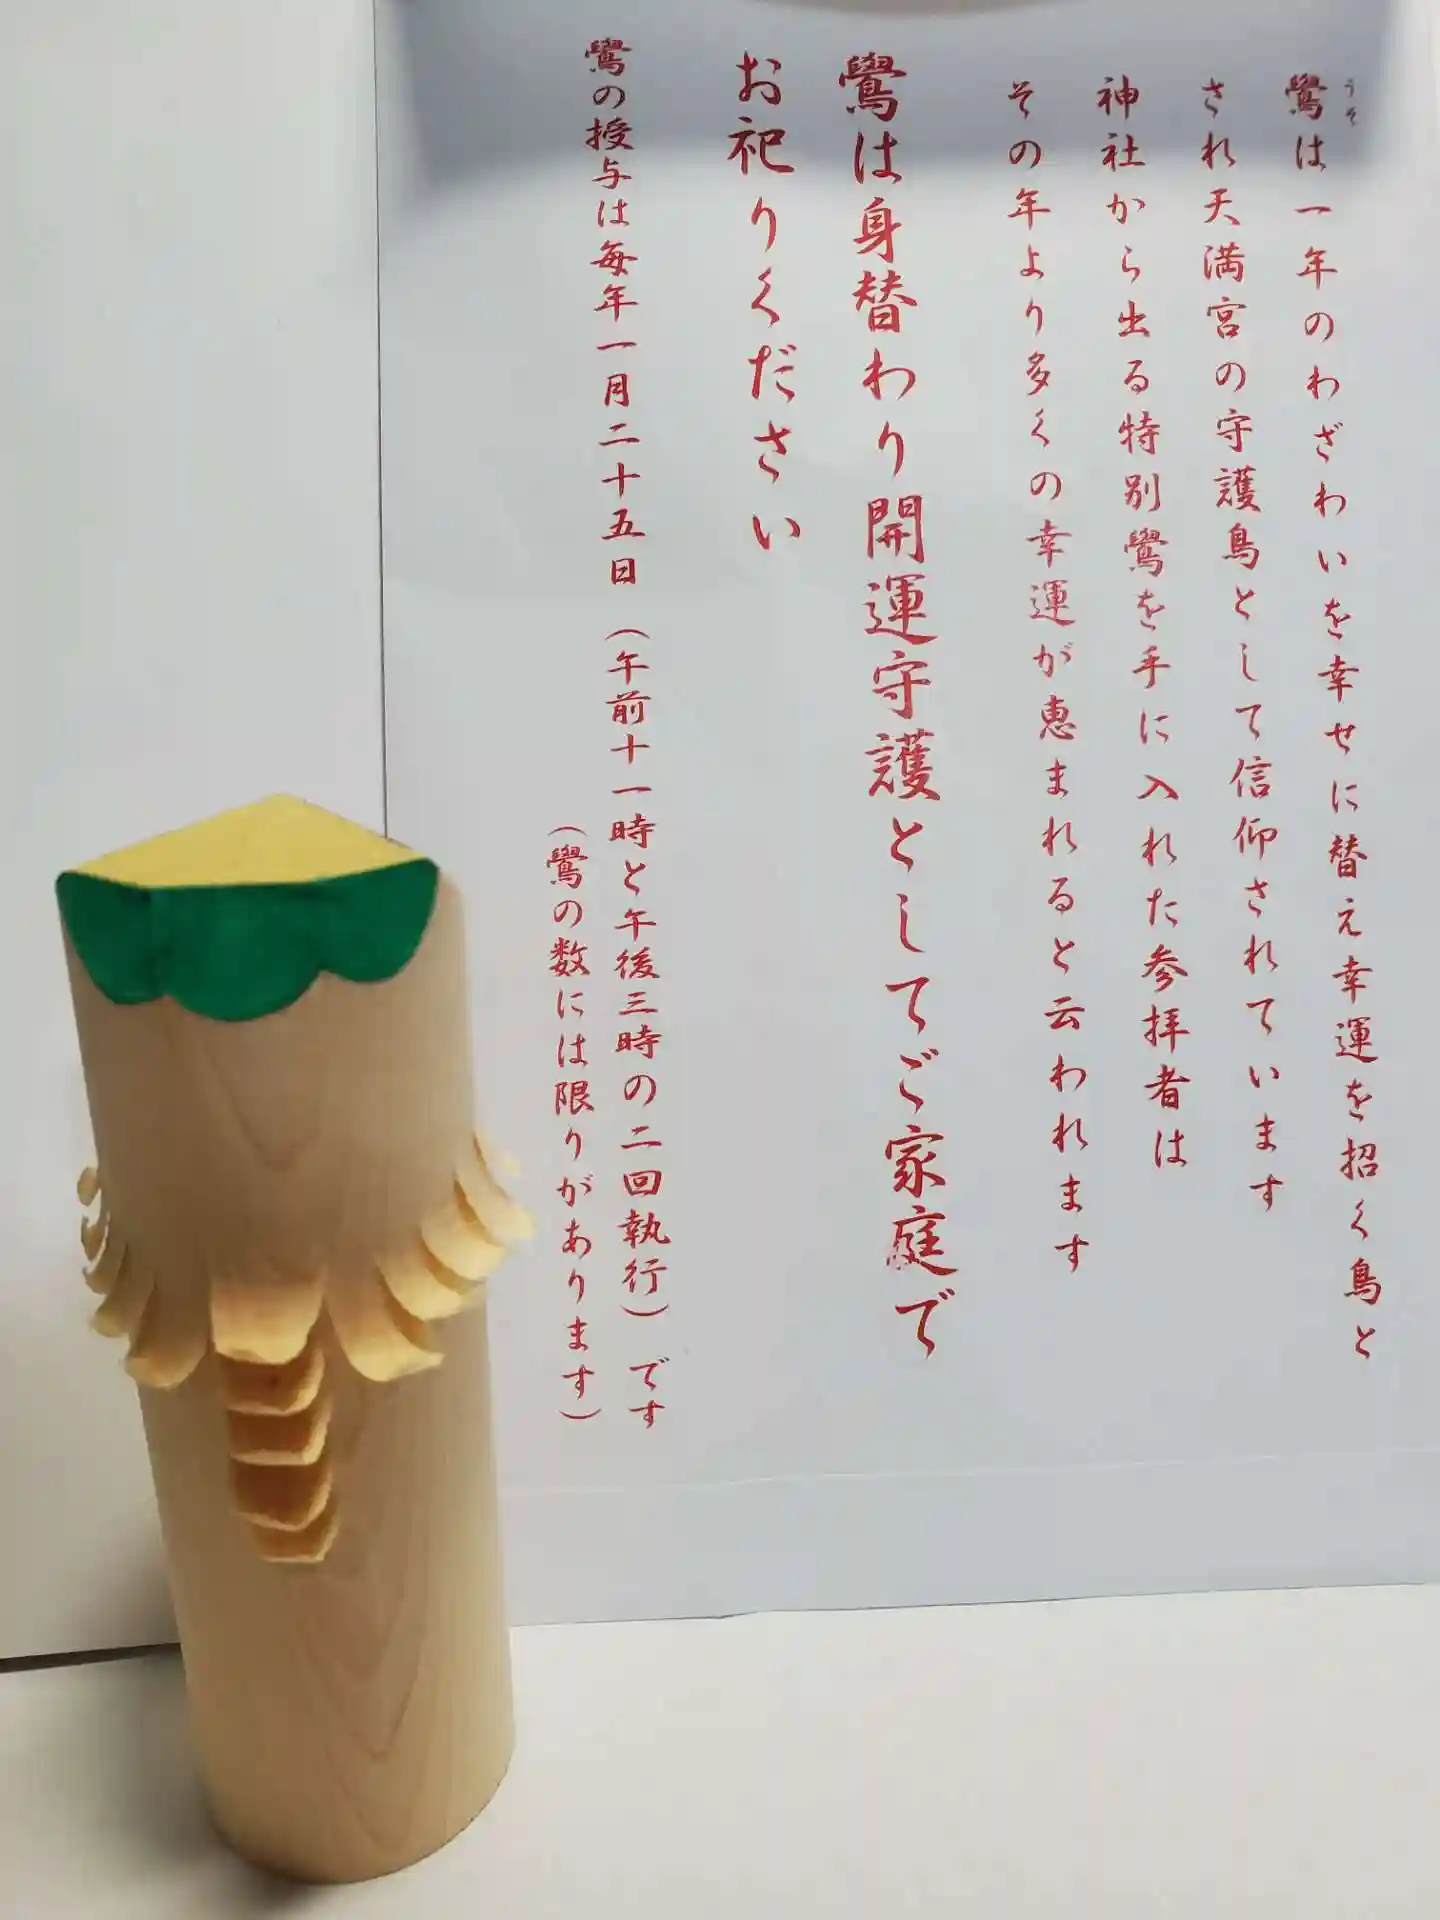 うそ
鷽は一年のわざわいを幸せに替え幸運を招く鳥と
され天満宮の守護鳥として信仰されています
神社から出る特別鷽を手に入れた参拝者は
その年より多くの幸運が恵まれると云われます
鷽は身替わり開運守護としてご家庭で
お祀りください
鷽の授与は毎年一月二十五日（午前十一時と午後三時の二回執行）です
（鷽の数には限りがあります）